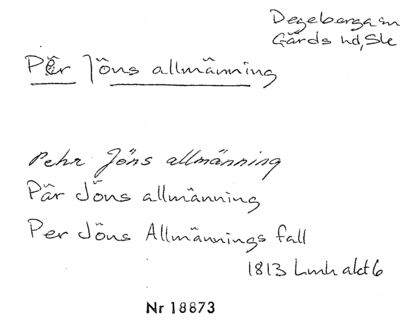 Degeberga sn
Gärds hd, Ske
Pär Jöns allmänning
Pehr Jöns allmänning
Pär Jöns allmänning
Per Jöns Allmännings fall
1813 Lmh akt 6
Nr 18873